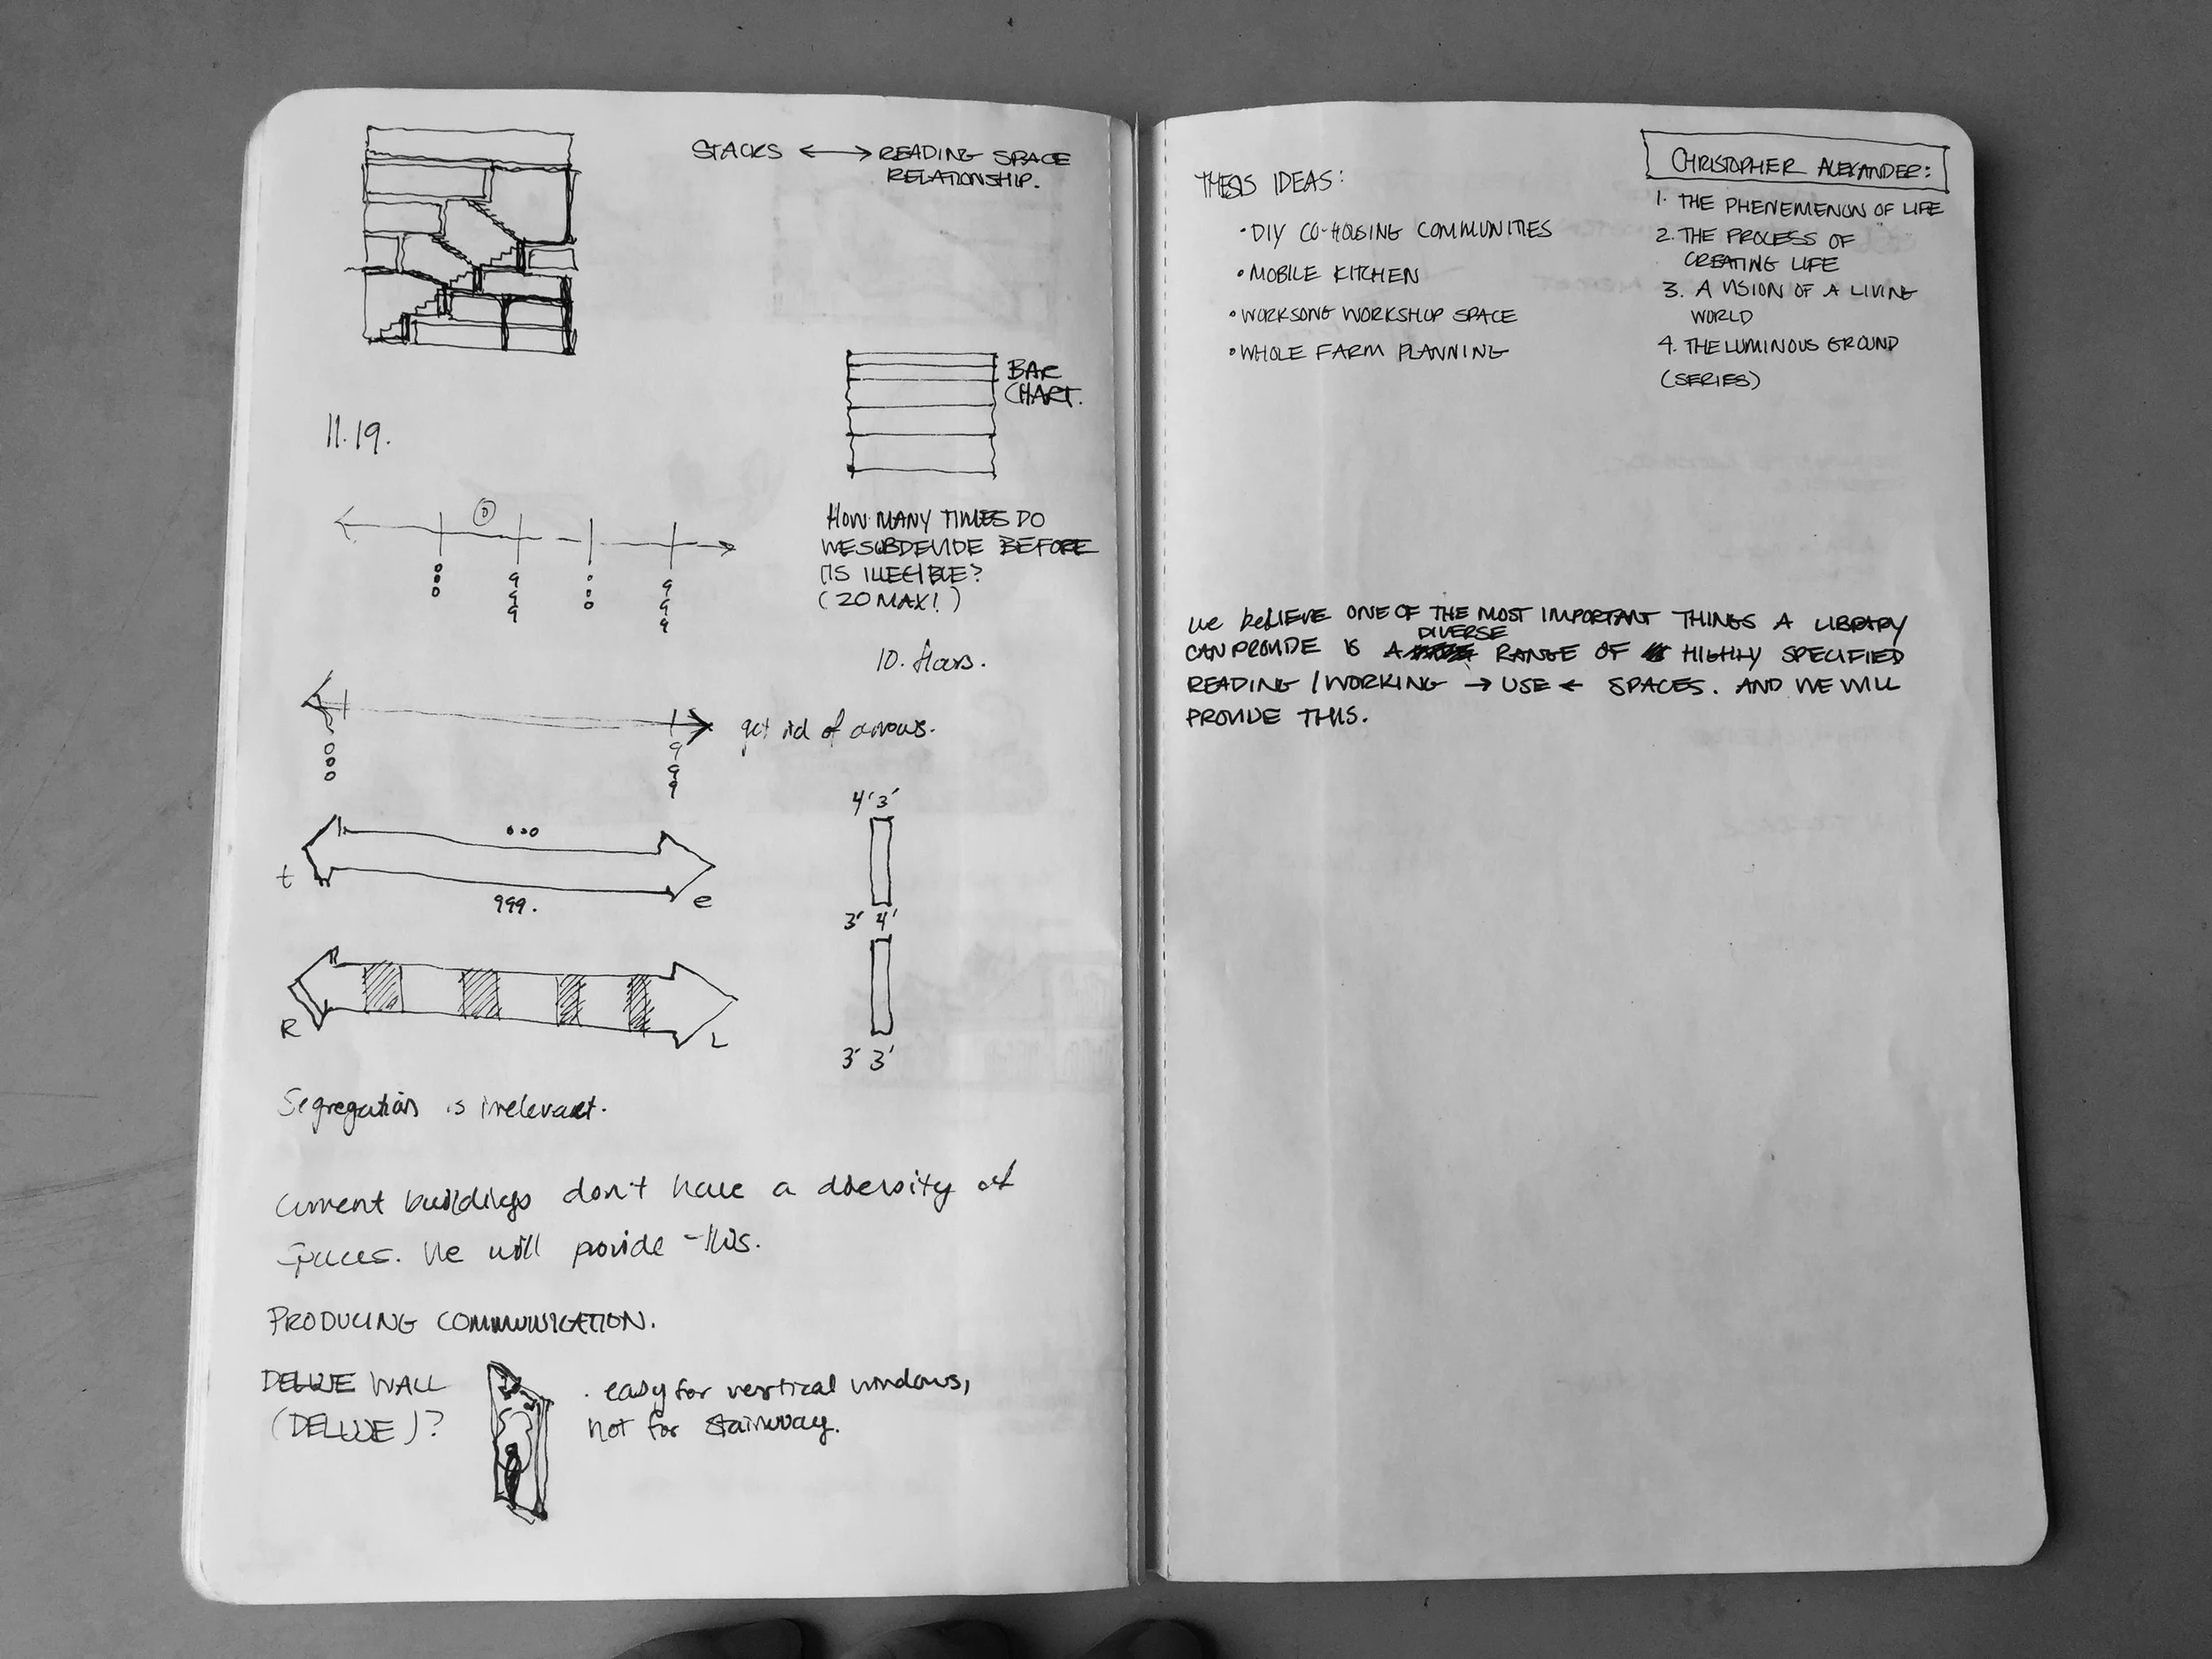 STACKS ⟷ READING SPACE
RELATIONSHIP.
BAR
CHART.
11.19.
HOW MANY TIMES DO
WE SUBDEVIDE BEFORE
ITS ILLEGIBLE?
(20 MAX!)
0 9 0 9
0 9 0 9
0 9 0 9
10. floors.
get rid of arrows.
0 9
0 9
0 9
000
t e
999.
4' 3'
3' 4'
R L
3' 3'
Segregation is irrelevant.
Current buildings don't have a diversity of
spaces. We will provide this.
PRODUCING COMMUNICATION.
DELUZE WALL
(DELUZE)?
· easy for vertical windows,
not for stairway.
THESIS IDEAS:
• DIY CO-HOUSING COMMUNITIES
• MOBILE KITCHEN
• WORKSONG WORKSHOP SPACE
• WHOLE FARM PLANNING
CHRISTOPHER ALEXANDER:
1. THE PHENEMENON OF LIFE
2. THE PROCESS OF
CREATING LIFE
3. A VISION OF A LIVING
WORLD
4. THE LUMINOUS GROUND
(SERIES)
We beLIEVE ONE OF THE MOST IMPORTANT THINGS A LIBRARY
CAN PROVIDE IS A DIVERSE RANGE OF HIGHLY SPECIFIED
READING / WORKING → USE ← SPACES. AND WE WILL
PROVIDE THIS.